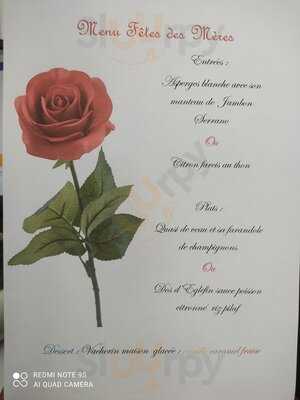 Menu Fêtes des Mères
Entrées :
Asperges blanche avec son
manteau de Jambon
Serrano
Ou
Citron farcis au thon
Plats :
Quasi de veau et sa farandole
de champignons
Ou
Dos d'Eglefin sauce poisson
citronné riz pilaf
Dessert : Vacherin maison glacée : vanille caramel fraise
REDMI NOTE 9S
AI QUAD CAMERA